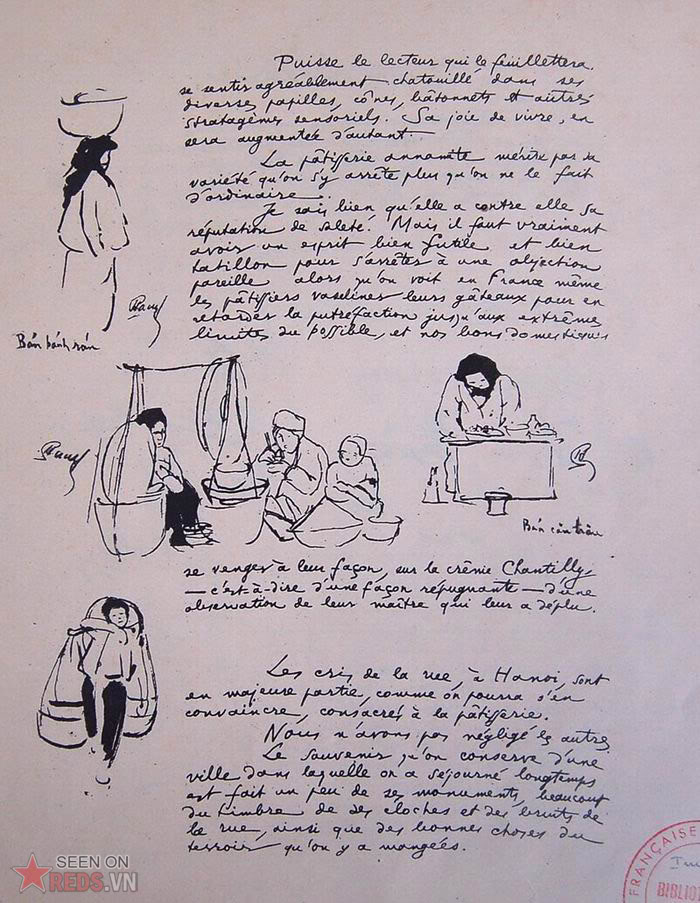 Puisse le lecteur qui le feuillettera
se sentir agréablement chatouillé dans ses
diverses papilles, cônes, bâtonnets et autres
stratagèmes sensoriels. Sa joie de vivre, en
sera augmentée d'autant.
La pâtisserie annamite mérite par sa
variété qu'on s'y arrête plus qu'on ne le fait
d'ordinaire.
Je sais bien qu'elle a contre elle sa
réputation de saleté. Mais il faut vraiment
avoir un esprit bien futile et bien
tatillon pour s'arrêter à une objection
pareille alors qu'on voit en France même
les pâtissiers vaseliner leurs gâteaux pour en
retarder la putréfaction jusqu'aux extrêmes
limites du possible, et nos bons domestiques
Bán bánh rán
Bán
se venger à leur façon, sur la crème Chantilly
— c'est-à-dire d'une façon répugnante — d'une
observation de leur maître qui leur a déplu.
Les cris de la rue, à Hanoi, sont
en majeure partie, comme on pourra s'en
convaincre, consacrés à la pâtisserie.
Nous n'avons pas négligé les autres.
Le souvenir qu'on conserve d'une
ville dans laquelle on a séjourné longtemps
est fait un peu de ses monuments, beaucoup
du timbre de ses cloches et des bruits de
la rue, ainsi que des bonnes choses du
terroir qu'on y a mangées.
FRANÇAISE
BIBLIO
SEEN ON
REDS.VN